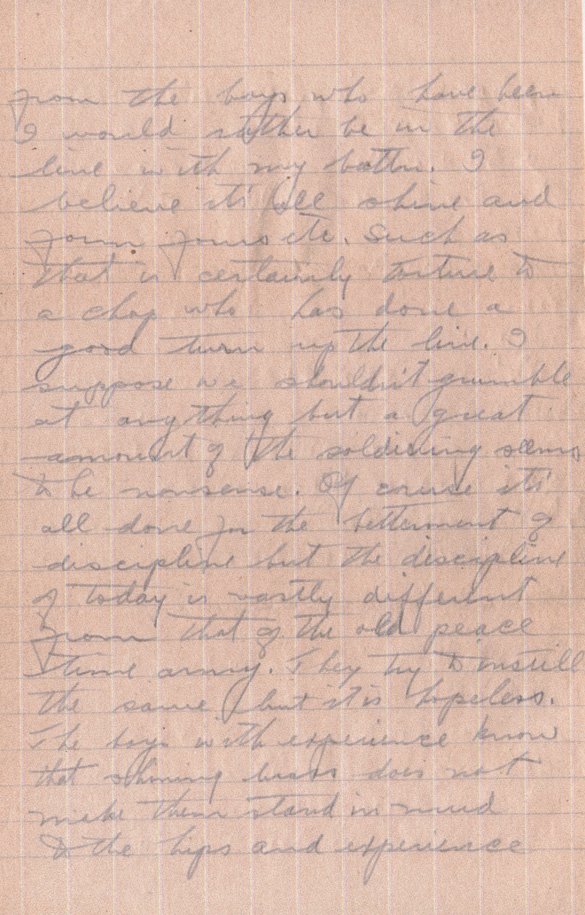 from the boys who have been
I would rather be in the
line with my battn. I
believe it's all shine and
form fours etc. Such as
that is certainly torture to
a chap who has done a
good turn up the line. I
suppose we shouldn't grumble
at anything but a great
amount of the soldiering seems
to be nonsense. Of course it's
all done for the betterment of
discipline but the discipline
of today is vastly different
from that of the old peace
time army. They try to instill
the same but it is hopeless.
The boys with experience know
that shining brass does not
make them stand in mud
to the hips and experience